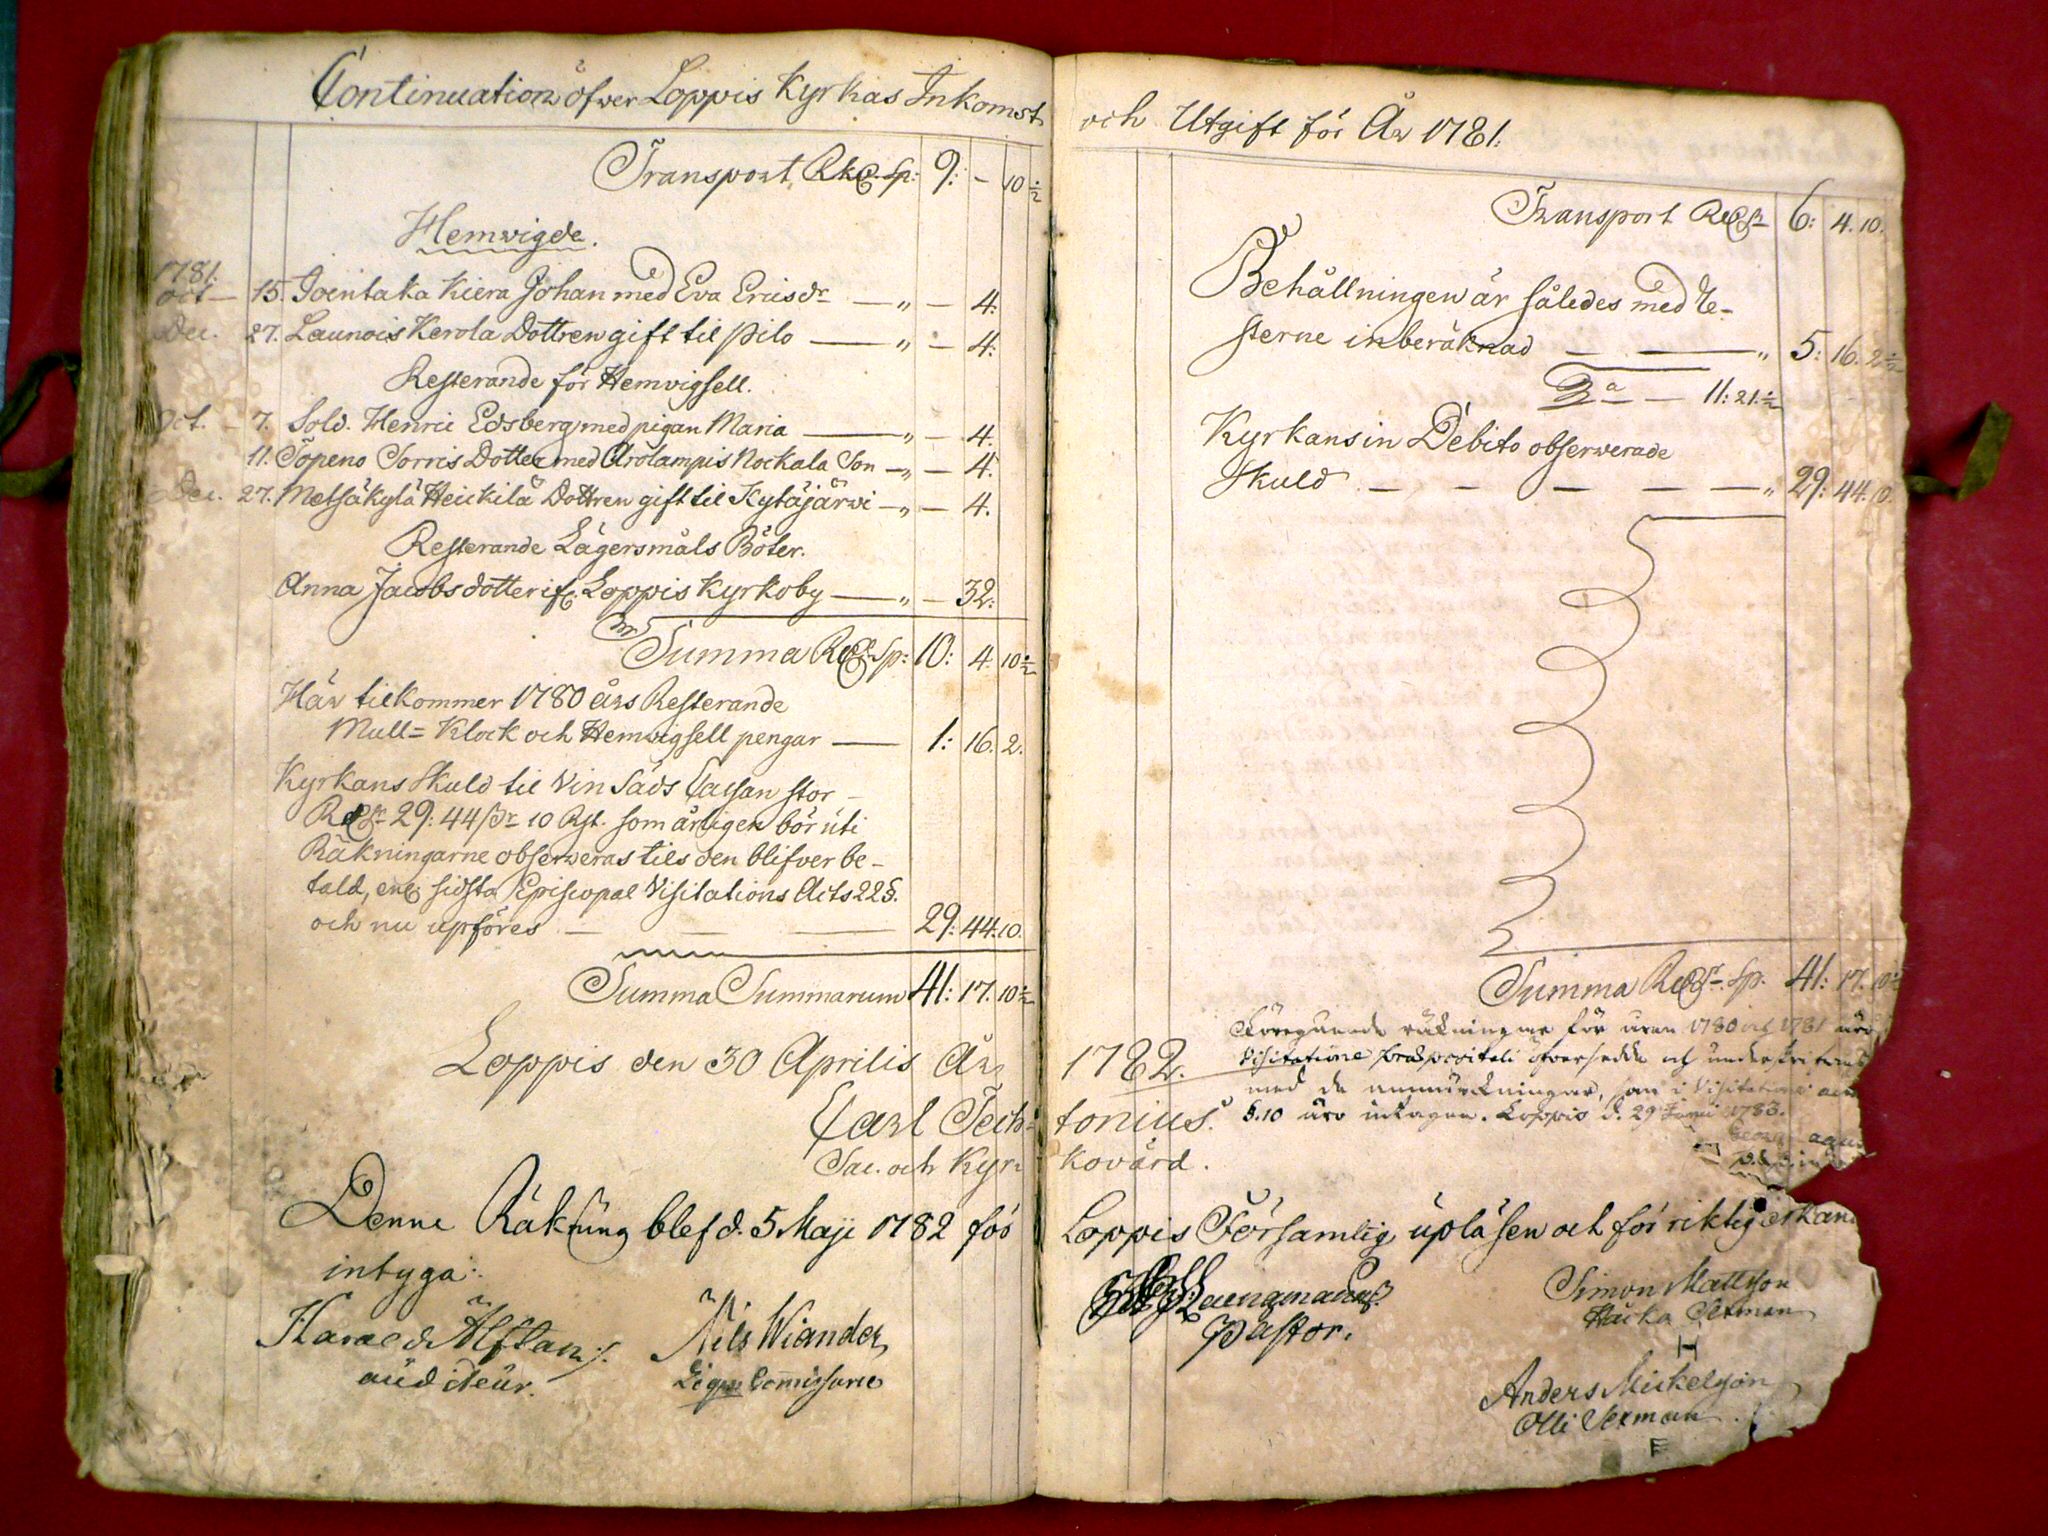 Continuation öfver Loppis Kyrkas Inkomst
Transport Rkd Sp: 9: - 10 ½
Hemvigde.
1781.
oct - 15. Joentaka Kiera Johan med Eva Ericsdr — " - 4:
Dec. 27. Launois Kerola Dottren gift til Pilo — " - 4:
Resterande för Hemvigsell.
Oct. - 7. Sold. Henric Edsberg med pigan Maria — " - 4.
11. Töpeno Sorris Dotter med Arolampis Nockala Son - " - 4.
Dec. 27. Metsäkylä Heickilä Dottren gift til Kytäjärvi - " - 4.
Resterande Lägersmåls Böter.
Anna Jacobsdotter if. Loppis Kyrkoby — " - 32:
Summa Rd Sp: 10: 4. 10 ½
Här tilkommer 1780 års Resterande
Mull= Klock och Hemvigsell pengar — 1: 16. 2.
Kyrkans Skuld til Vin Säds Cassan stor
Rdr 29: 44 sr 10 Rst. som årligen bör uti
Räkningarne observeras tils den blifver be-
tald, enl. sidsta Episcopal Visitations Acts 22 §.
och nu upföres — 29: 44. 10.
Summa Summarum 41: 17. 10 ½
Loppis den 30 Aprilis År
Carl Tech-
Sac. och Kyr-
Denne Räkning blef d. 5 Maji 1782 för
intyga:
Harald Alftan
auditeur.
Nils Wiander
Commissarie
och Utgift för År 1781.
Transport Rdr 6: 4. 10.
Behållningen är således med Re-
sterne inberäknad — " 5: 16. 2 ½
11: 21. ½
Kyrkans in Debito observerade
Skuld — " 29: 44. 10.
Summa Rdr Sp. 41: 17. 10 ½
Föregående räkningar för åren 1780 och 1781 äro
1782. Visitatione præpositali öfversedde och underskrifne
med de anmärkningar, som i Visitations
§. 10 äro intagne. Loppis d. 29 Junii 1783.
tonius.
kovärd.
Loppis Församling upläsen och för riktig erkän
Pastor.
Simon Mattsson
Häcka Sexman
H
Anders Mickelsson
Olli Sexman
E